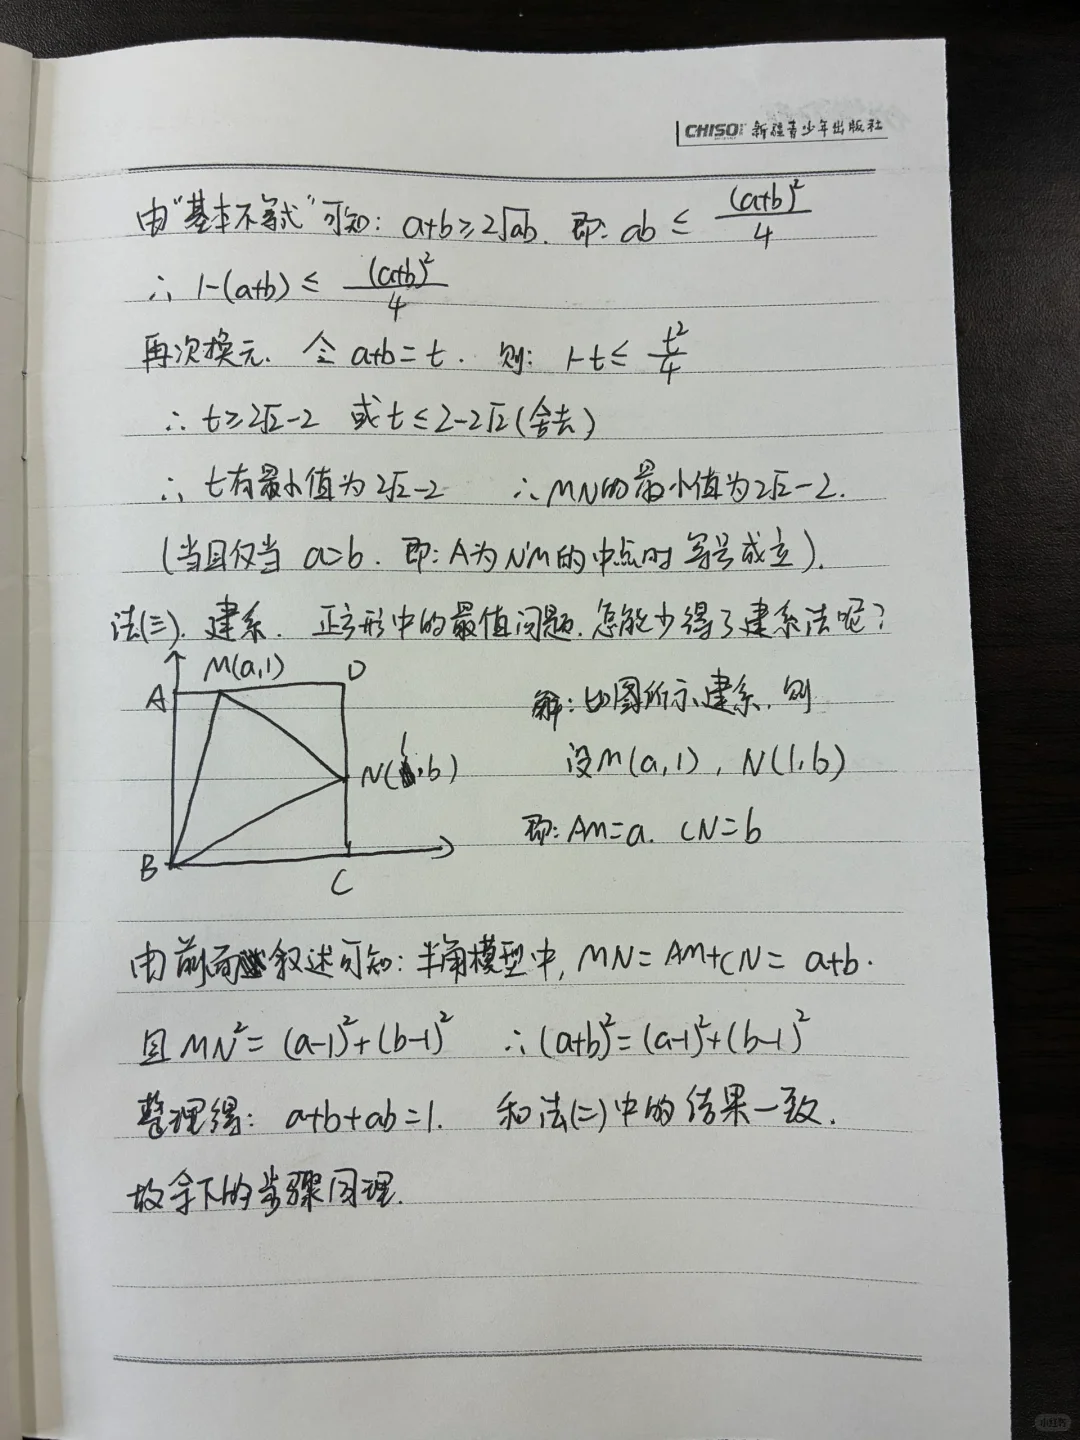 CHISO 新疆青少年出版社
由"基本不等式"可知: a+b≥2√ab. 即: ab ≤ (a+b)²/4
∴ 1-(a+b) ≤ (a+b)²/4
再次换元. 令 a+b=t. 则: 1-t ≤ t²/4
∴ t≥2√2-2 或 t≤2-2√2(舍去)
∴ t有最小值为2√2-2 ∴MN的最小值为2√2-2.
(当且仅当 a=b. 即: A为N'M的中点时 等号成立).
法(三). 建系. 正方形中的最值问题, 怎能少得了建系法呢?
A M(a,1) D
N(1,b)
B C
解: 如图所示, 建系. 则
设M(a,1), N(1,b)
即: AM=a. CN=b
由前面叙述可知: 半角模型中, MN=AM+CN=a+b.
且MN²=(a-1)²+(b-1)² ∴(a+b)²=(a-1)²+(b-1)²
整理得: a+b+ab=1. 和法(二)中的结果一致.
故余下的步骤同理.
小红书